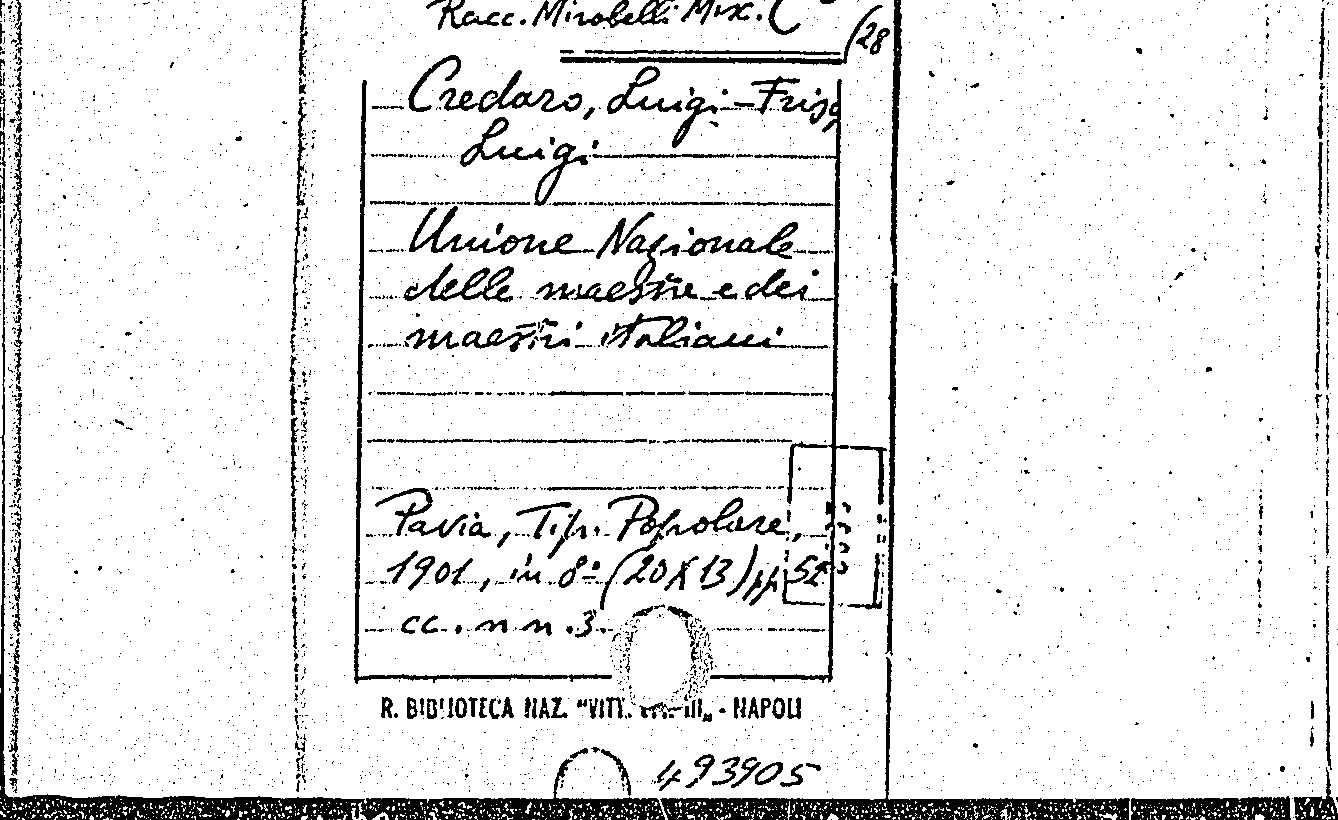 Racc. Mirabelli Misc. C
(28
Credaro, Luigi - Friso
Luigi
Unione Nazionale
delle maestre e dei
maestri italiani
Pavia, Tip. Popolare,
1901, in 8º (20X13) pp. 52
cc. n n. 3.
R. BIBLIOTECA NAZ. "VITT. III„ - NAPOLI
493905